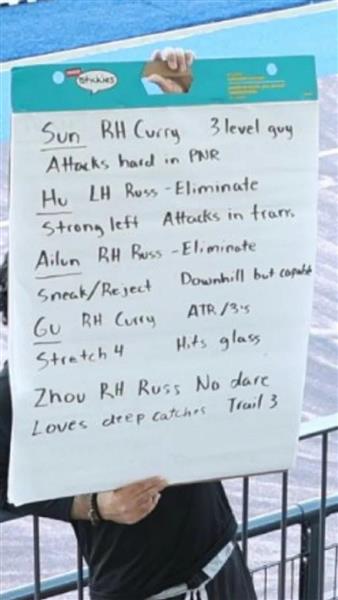 stickies
Sun RH Curry 3 level guy
Attacks hard in PNR
Hu LH Russ - Eliminate
Strong left Attacks in tran.
Ailun RH Russ - Eliminate
Sneak/Reject Downhill but capable
Gu RH Curry ATR/3's
Stretch 4 Hits glass
Zhou RH Russ No dare
Loves deep catches Trail 3